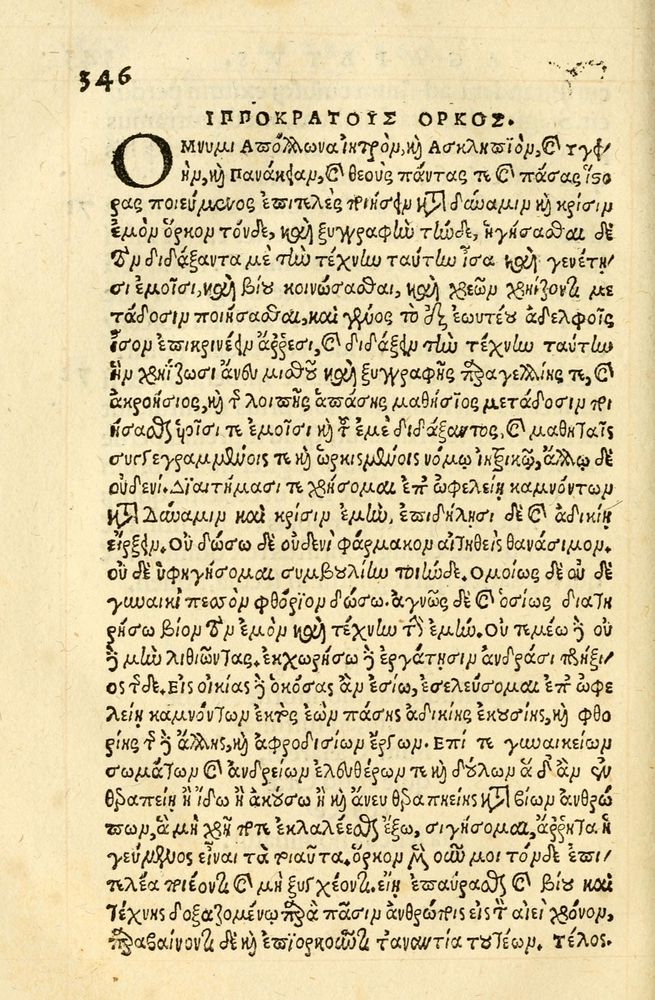 346
ΙΠΠΟΚΡΑΤΟΥΣ ΟΡΚΟΣ.
ΟΜνυμι Απόλλωνα ἰητρὸν, καὶ Ασκληπιὸν, καὶ Υγεί-
ην, καὶ Πανάκειαν, καὶ θεοὺς πάντας τε καὶ πάσας ἵςο
ρας ποιεύμενος ἐπιτελέα ποιήσειν κατὰ δύναμιν καὶ κρίσιν
ἐμὸν ὅρκον τόνδε, καὶ ξυγγραφὴν τήνδε, ἡγήσασθαι δὲ
τὸν διδάξαντα με τὴν τέχνην ταύτην ἶσα καὶ γενέτη-
σι ἐμοῖσι, καὶ βίου κοινώσασθαι, καὶ χρεῶν χρηίζοντι με
τάδοσιν ποιήσασθαι, καὶ γένος τὸ ἐξ ἑωυτέου ἀδελφοῖς
ἶσον ἐπικρινέειν ἄρρεσι, καὶ διδάξειν τὴν τέχνην ταύτην
ἢν χρηίζωσι ἄνευ μισθοῦ καὶ ξυγγραφῆς παραγγελίης τε, καὶ
ἀκροήσιος, καὶ τῆς λοιπῆς ἁπάσης μαθήσιος μετάδοσιν ποι
ήσασθαι υἱοῖσι τε ἐμοῖσι καὶ τοῦ ἐμὲ διδάξαντος, καὶ μαθηταῖς
συγγεγραμμένοις τε καὶ ὡρκισμένοις νόμῳ ἰητρικῷ, ἄλλῳ δὲ
οὐδενί. Διαιτήμασι τε χρήσομαι ἐπ' ὠφελείῃ καμνόντων
κατὰ δύναμιν καὶ κρίσιν ἐμὴν, ἐπιδηλήσει δὲ καὶ ἀδικίῃ
εἴρξειν. Οὐ δώσω δὲ οὐδενὶ φάρμακον αἰτηθεὶς θανάσιμον.
οὐ δὲ ὑφηγήσομαι συμβουλίην τοιήνδε. Ομοίως δὲ οὐ δὲ
γυναικὶ πεσσὸν φθόριον δώσω. ἁγνῶς δὲ καὶ ὁσίως διατη
ρήσω βίον τὸν ἐμὸν καὶ τέχνην τὴν ἐμήν. Οὐ τεμέω δὲ οὐ
δὲ μὴν λιθιῶντας. ἐκχωρήσω δὲ ἐργάτῃσιν ἀνδράσι πρήξι-
ος τῆσδε. Εἰς οἰκίας δὲ ὁκόσας ἂν ἐσίω, ἐσελεύσομαι ἐπ' ὠφε
λείῃ καμνόντων ἐκτὸς ἐὼν πάσης ἀδικίης ἑκουσίης, καὶ φθο
ρίης τῆς τε ἄλλης, καὶ ἀφροδισίων ἔργων. Επί τε γυναικείων
σωμάτων καὶ ἀνδρείων ἐλευθέρων τε καὶ δούλων ἃ δ' ἂν ἐν
θεραπείῃ ἢ ἴδω ἢ ἀκούσω ἢ καὶ ἄνευ θεραπηείης κατὰ βίων ἀνθρώ
πων, ἃ μὴ χρή ποτε ἐκλαλέεσθαι ἔξω, σιγήσομαι, ἄρρητα ἡ
γεύμενος εἶναι τὰ τοιαῦτα. ὅρκον μὲν οὖν μοι τόνδε ἐπι-
τελέα ποιέοντι καὶ μὴ ξυγχέοντι. εἴη ἐπαύρασθαι καὶ βίου καὶ
τέχνης δοξαζομένῳ παρὰ πᾶσιν ἀνθρώποις εἰς τὸν αἰεὶ χρόνον,
παραβαίνοντι δὲ καὶ ἐπιορκοῦντι τἀναντία τουτέων. τέλος.